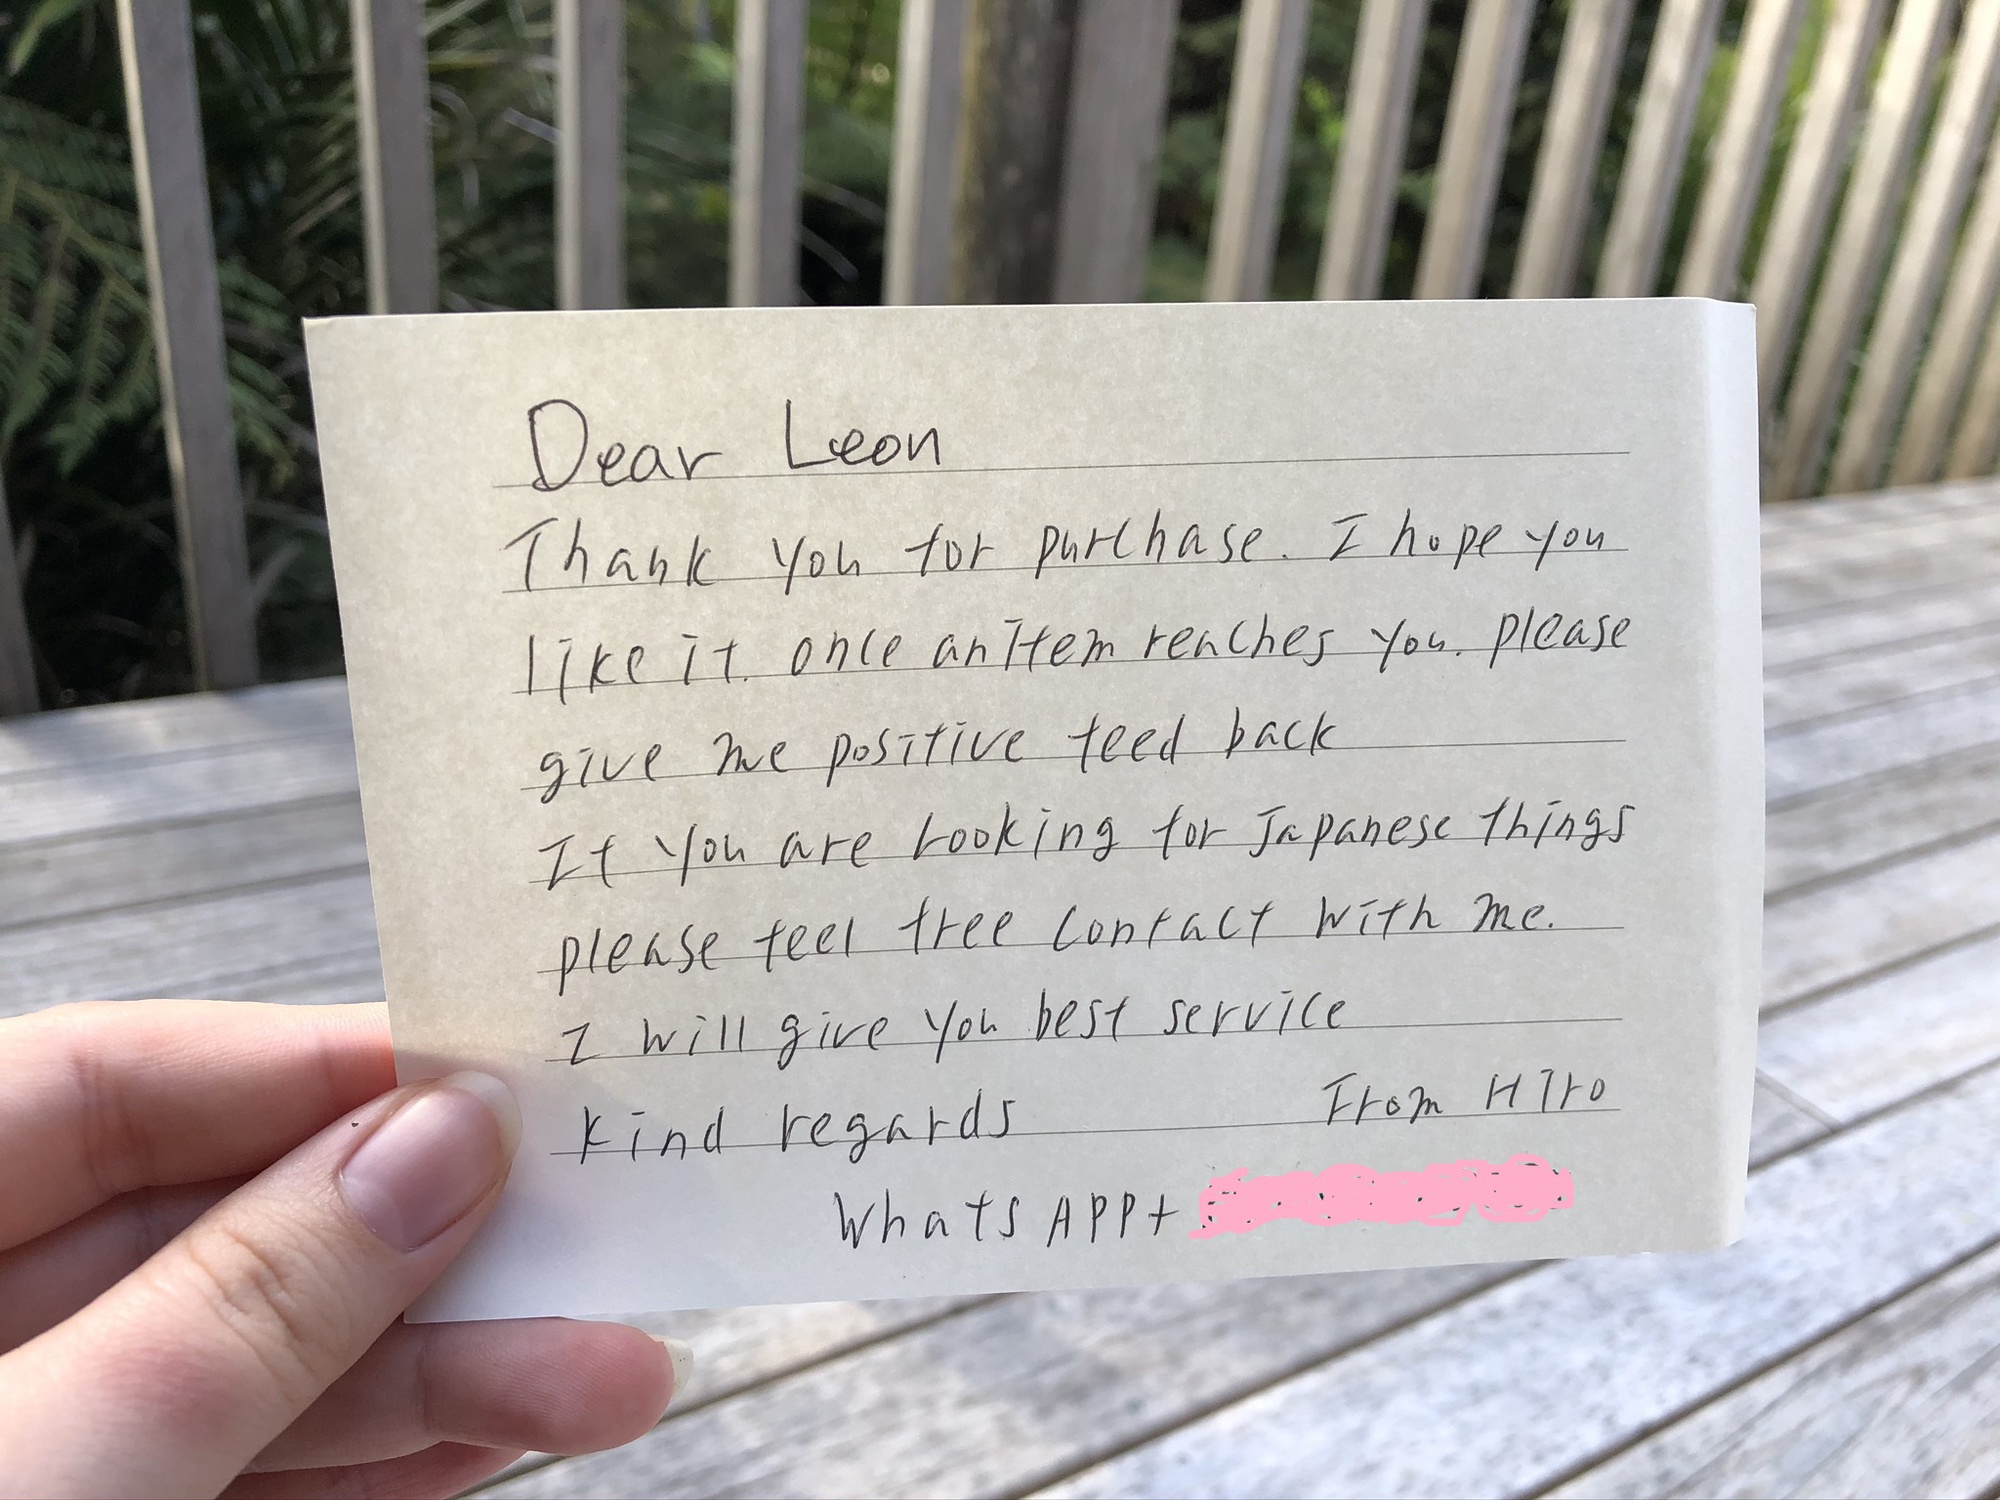 Dear Leon
Thank you for purchase. I hope you
like it. once an item reaches you. please
give me positive feed back
If you are Looking for Japanese things
please feel free contact with me.
I will give you best service
kind regards From Hiro
Whats APP+